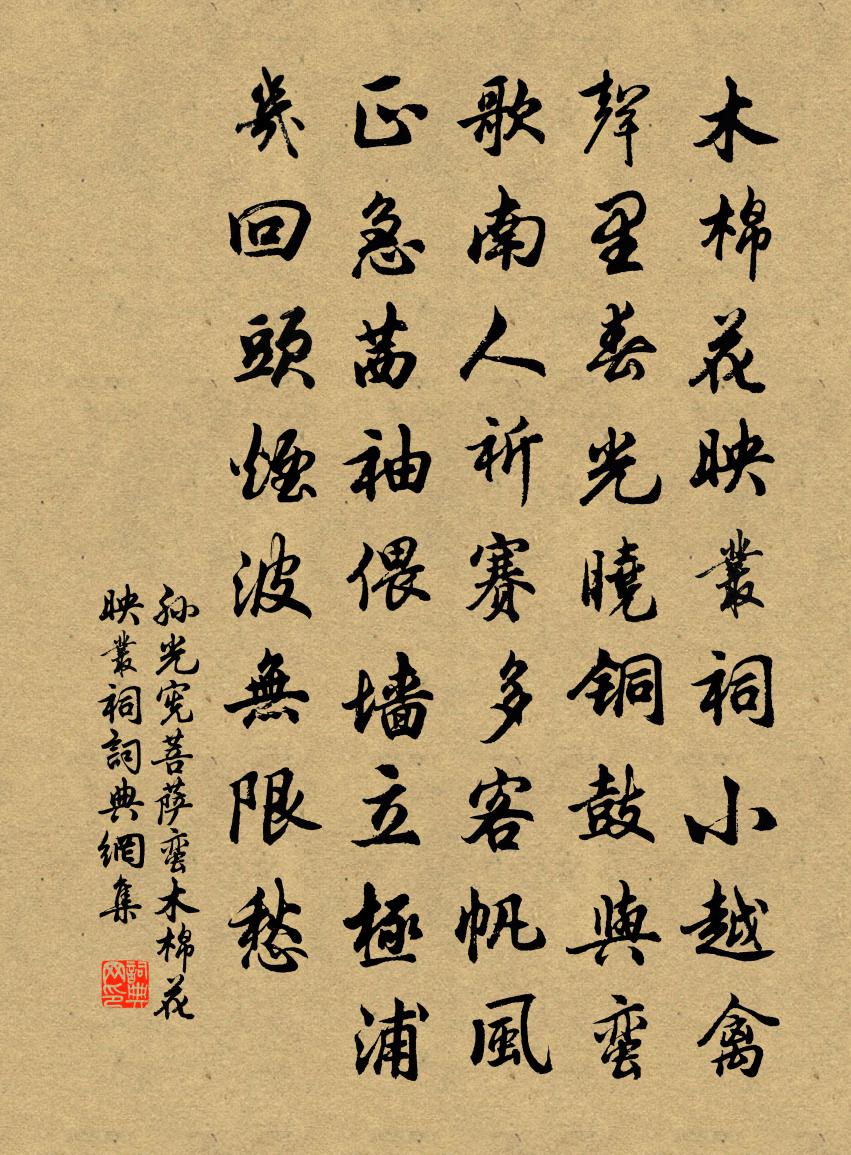 木棉花映叢祠小越禽
聲里春光曉銅鼓與蛮
歌南人祈賽多客帆風
正急茜袖偎墙立極浦
幾回頭煙波無限愁
孙光宪菩萨蛮木棉花
映叢祠詞典網集
詞典网印